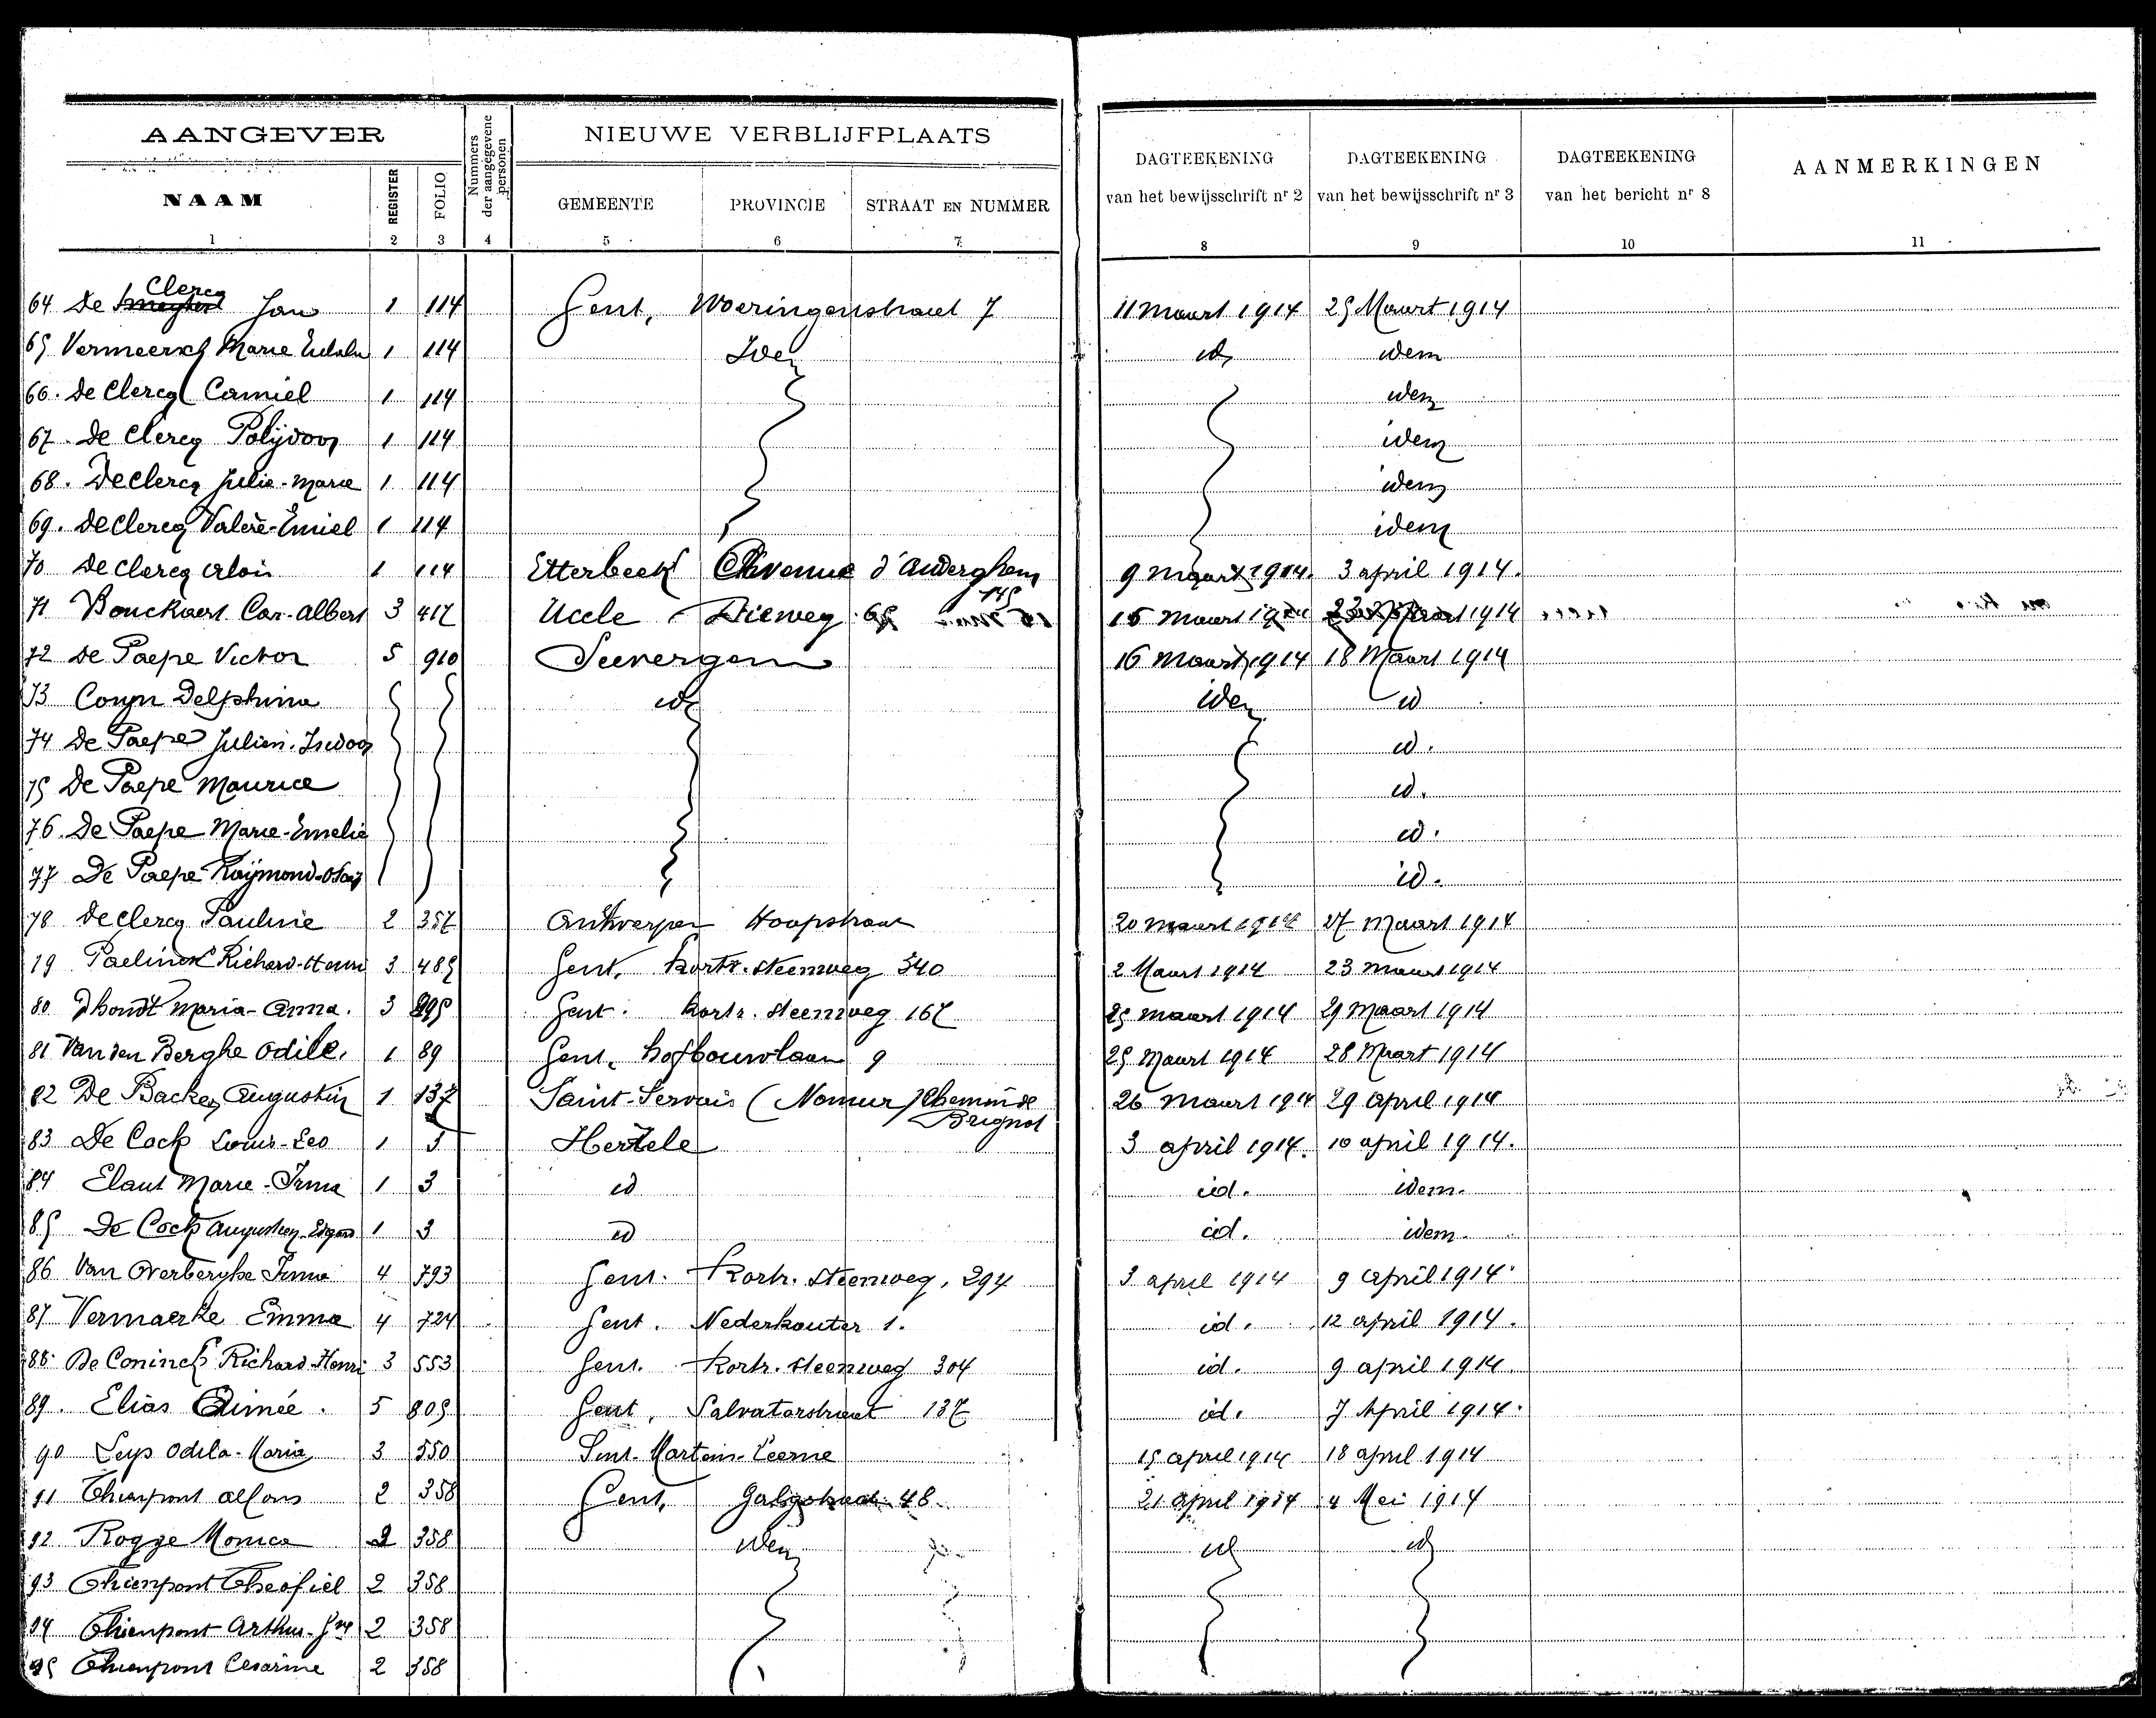 AANGEVER
Nummers der aangegevene personen
NIEUWE VERBLIJFPLAATS
DAGTEEKENING van het bewijsschrift nr 2
DAGTEEKENING van het bewijsschrift nr 3
DAGTEEKENING van het bericht nr 8
AANMERKINGEN
NAAM REGISTER FOLIO GEMEENTE PROVINCIE STRAAT EN NUMMER
1 2 3 4 5 6 7 8 9 10 11
Clercq
64 De Jan 1 114 Gent, Woeringenstraat 7 11 Maart 1914 25 Maart 1914
65 Vermeersch Marie 1 114 Idem id idem
66. De Clercq Camiel 1 114 idem
67. De Clercq Polydoor 1 114 idem
68. De Clercq Julie-Marie 1 114 idem
69. De Clercq Valere-Emiel 1 114 idem
70 De Clercq Alois 1 114 Etterbeek Avenue d'Auderghem 145 9 Maart 1914. 3 april 1914.
71 Bouckaert Car-Albert 3 417 Uccle Dieweg 65 Maart 1914
72 De Paepe Victor 5 910 Seevergem 16 Maart 1914 18 Maart 1914
73 Coryn Delphina id idem id
74 De Paepe Julien-Isidoor id.
75 De Paepe Maurice id.
76 De Paepe Marie-Emelie id.
77 De Paepe Raymond id.
78 De Clercq Pauline 2 357 Antwerpen Hoopstraat 20 Maart 1914 27 Maart 1914
79 Paelinck Richard-Henri 3 485 Gent, Kortr. Steenweg 340 2 Maart 1914 23 Maart 1914
80 Dhondt Maria-Anna. 3 Gent. Kortr. Steenweg 167 25 Maart 1914 29 Maart 1914
81 Van den Berghe Odile. 1 89 Gent, Hofbouwlaan 9 25 Maart 1914 28 Maart 1914
82 De Backer Augustin 1 137 Saint-Servais (Namur) Chemin de Brignot 26 Maart 1914 29 april 1914
83 De Cock Louis-Leo 1 3 Hertzele 3 april 1914. 10 april 1914.
84 Elaut Marie-Irma 1 3 id id. idem.
85 De Cock 1 3 id id. idem.
86 Van Overberghe Irma 4 793 Gent. Kortr. Steenweg, 294 3 april 1914 9 April 1914.
87 Vermaerke Emma 4 724 Gent. Nederkouter 1. id. 12 april 1914.
88. De Coninck Richard-Henri 3 553 Gent. Kortr. Steenweg 304 id. 9 april 1914.
89. Elias Aimée. 5 805 Gent, Salvatorstraat 137 id. 7 April 1914.
90 Leys Odila-Maria 3 550 Sint-Martens-Leerne 15 april 1914 18 april 1914
91 Thienpont Alfons 2 358 Gent, 48. 21 April 1914 4 Mei 1914
92 Rogge Monica 2 358 idem id id
93 Thienpont Theofiel 2 358
94 Thienpont Arthur 2 358
95 Thienpont Cesarine 2 358